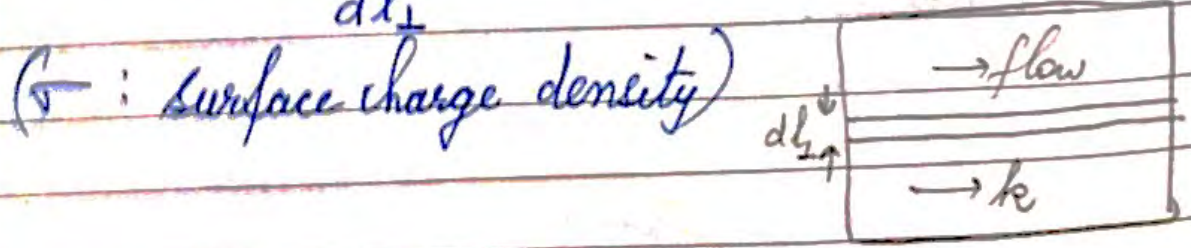 dl⊥
(σ : surface charge density)
→ flow
dl⊥
→ k